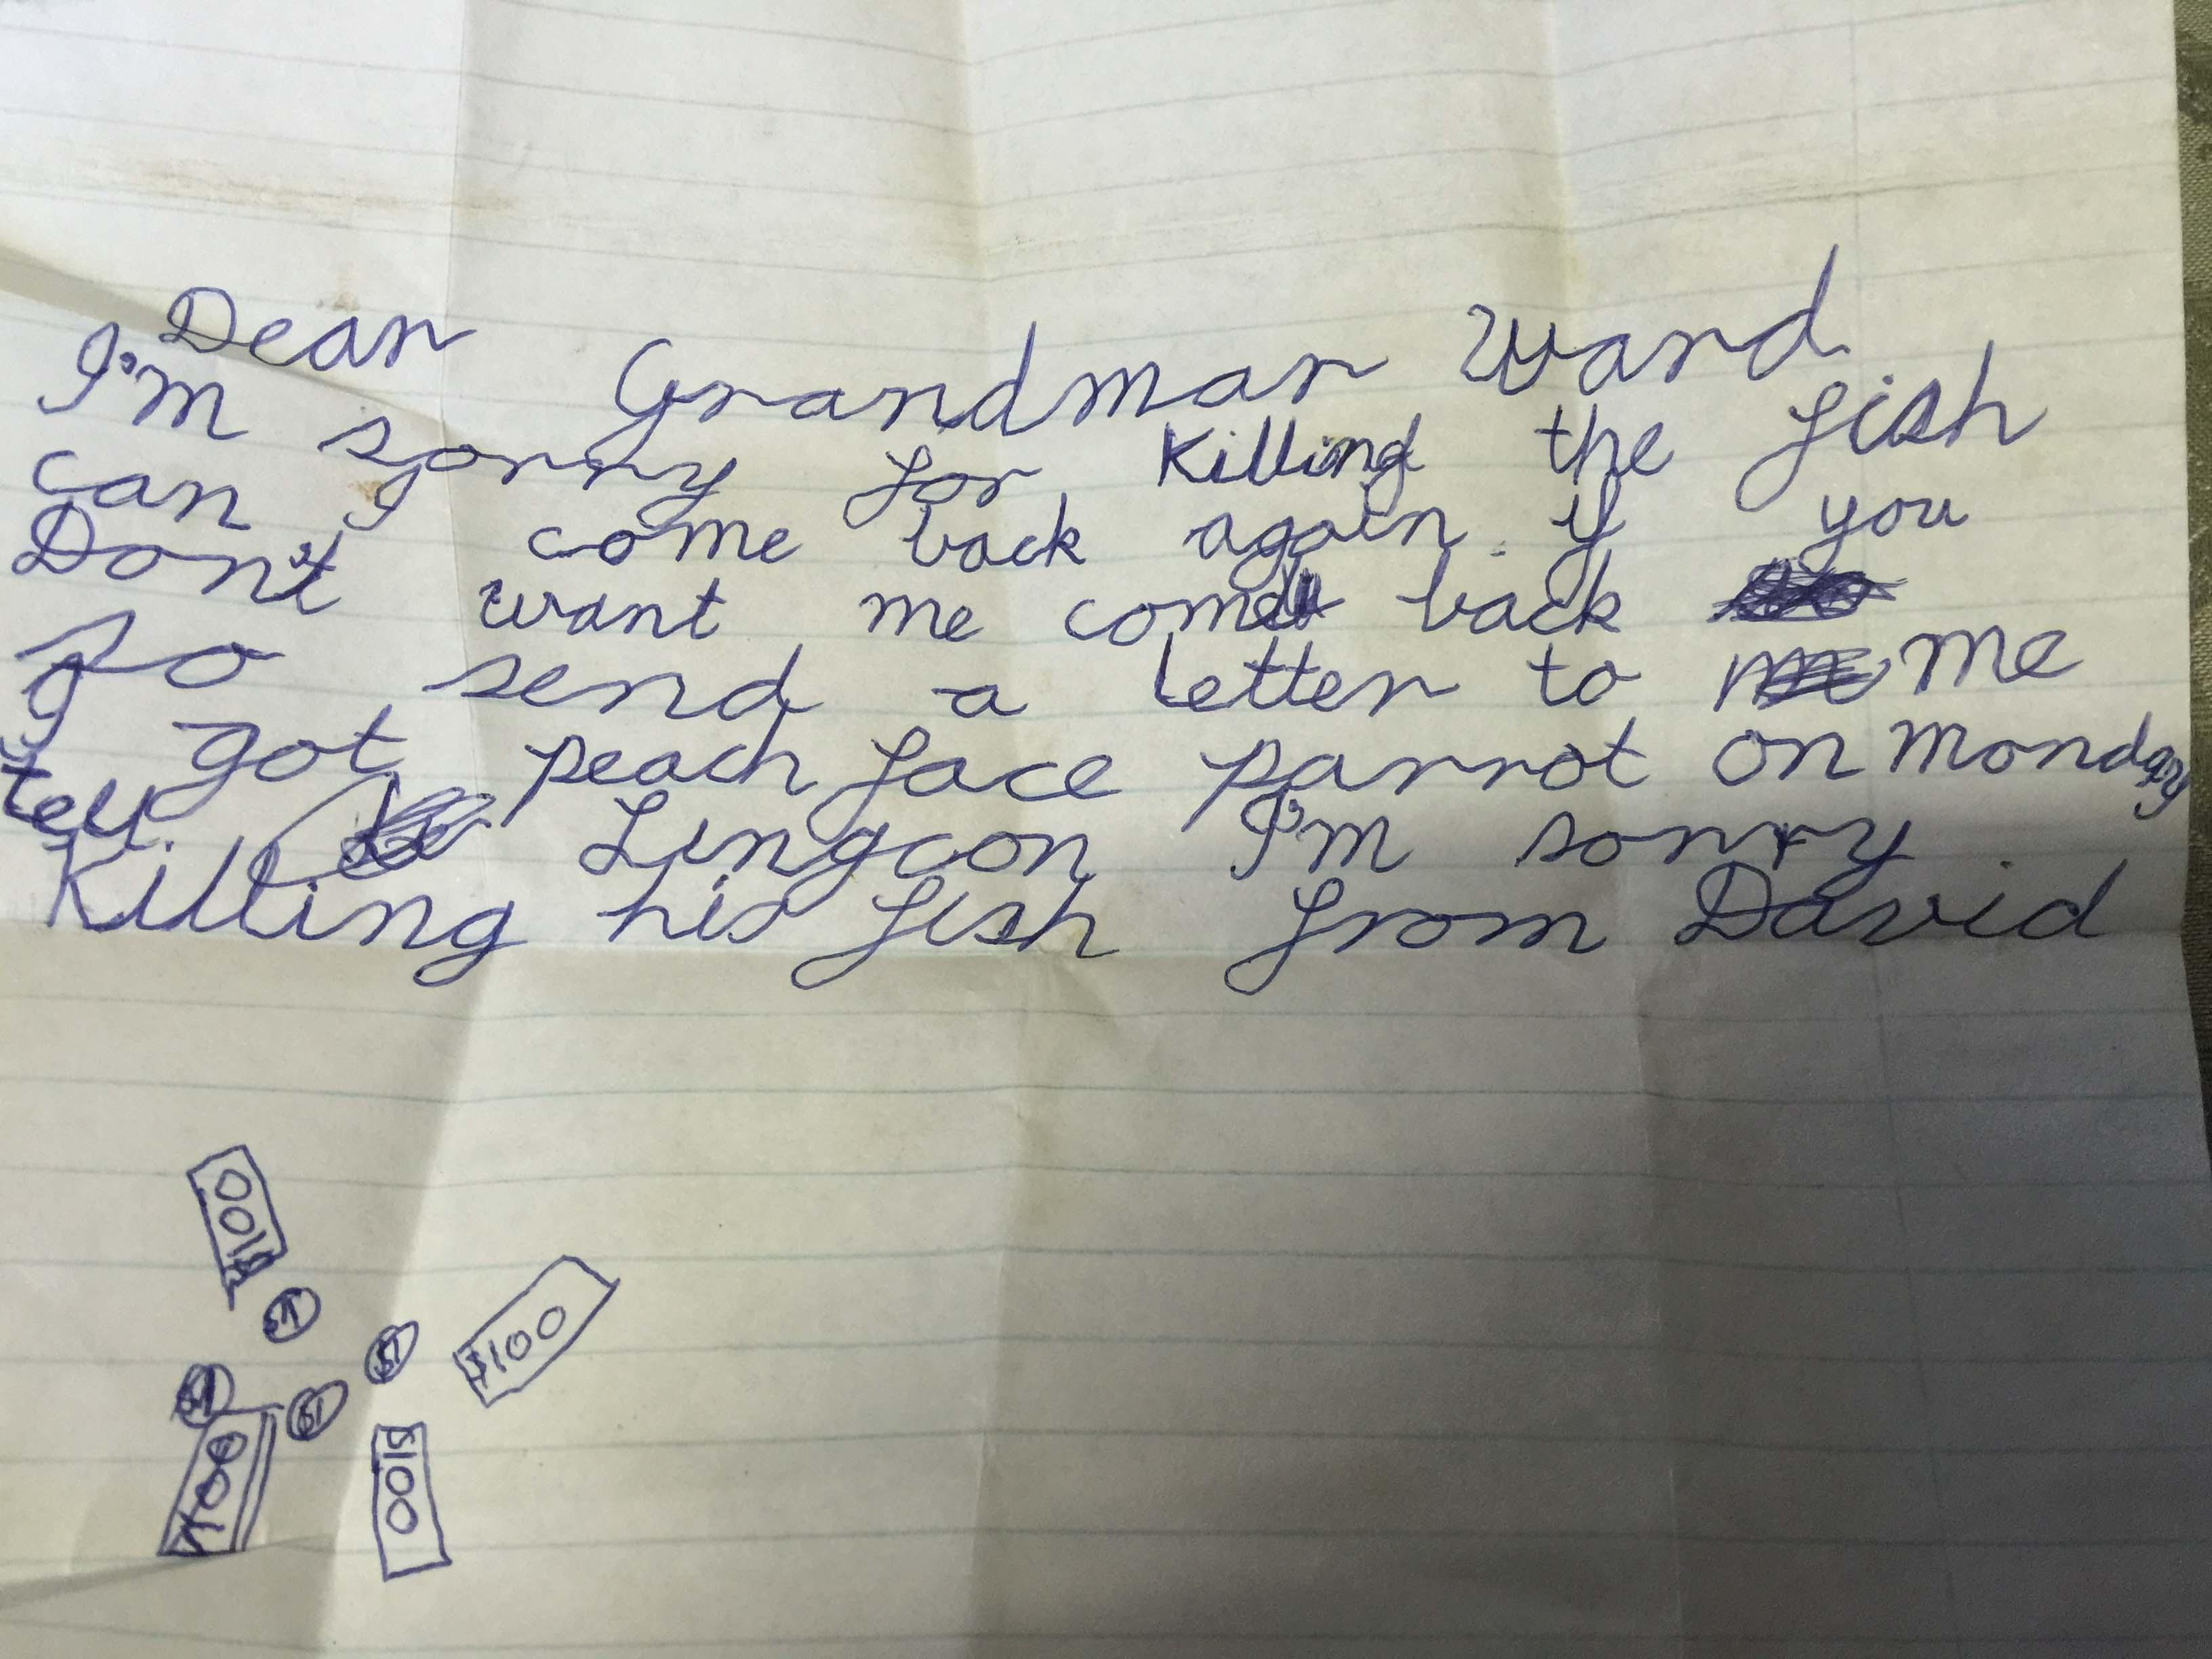 Dear Grandmar Ward
I'm sorry for killing the fish
can I come back again. if you
Don't want me come back
so send a letter to me
I got peach face parrot on monday
tell Lingcon I'm sorry
Killing his fish from David
$100
$1
$1
$100
$1
$1
$100
$100